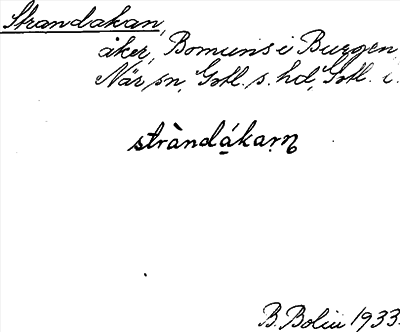 Strandakan,
åker, Bomunds i Burgen,
När sn, Gotl. s. hd, Gotl. l.
stràndákarn
B. Bolin 1933.